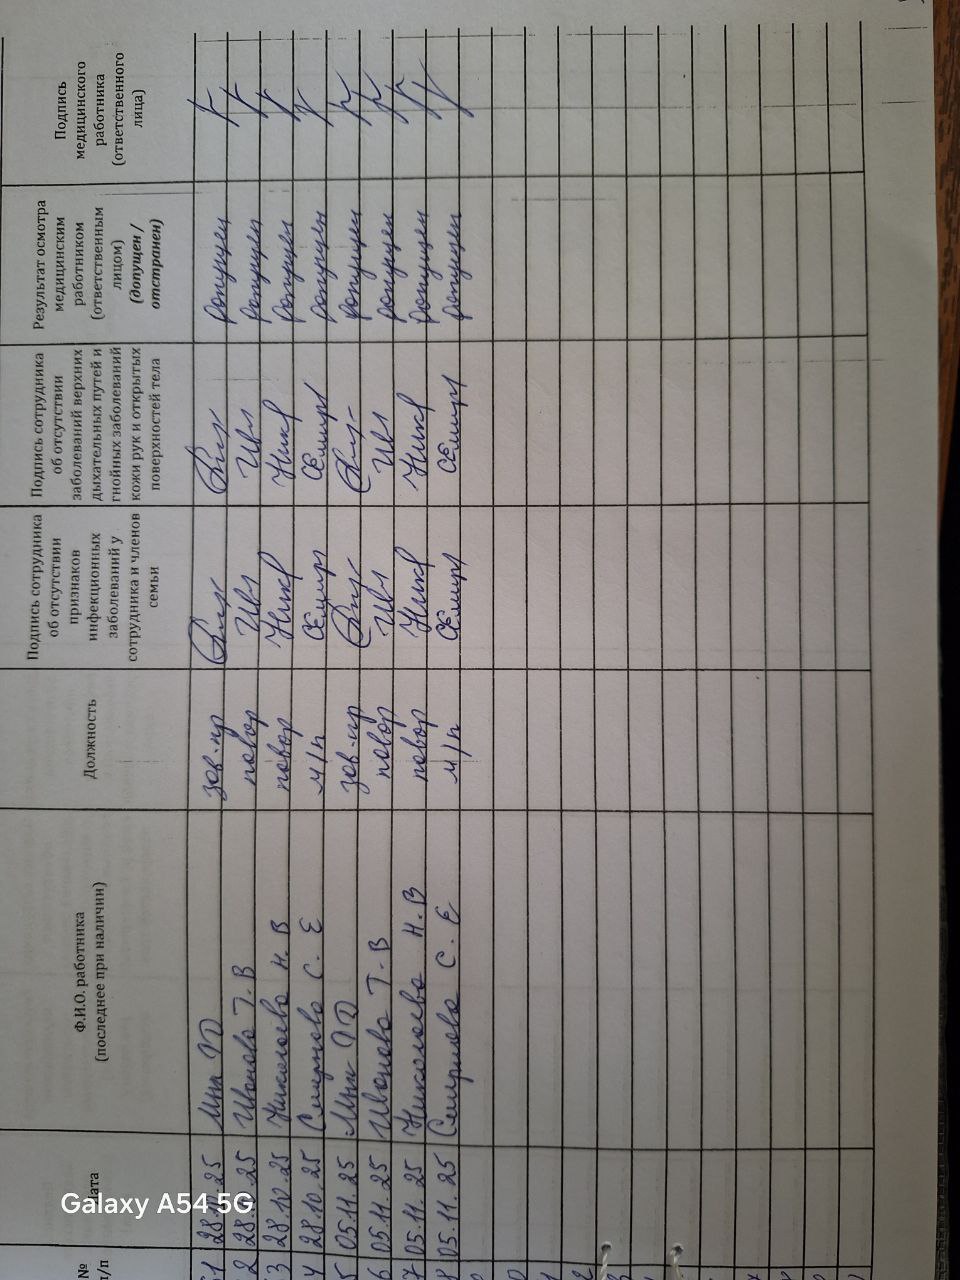 №
п/п
Дата
Ф.И.О. работника
(последнее при наличии)
Должность
Подпись сотрудника
об отсутствии
признаков
инфекционных
заболеваний у
сотрудника и членов
семьи
Подпись сотрудника
об отсутствии
заболеваний верхних
дыхательных путей и
гнойных заболеваний
кожи рук и открытых
поверхностей тела
Результат осмотра
медицинским
работником
(ответственным
лицом)
(допущен /
отстранен)
Подпись
медицинского
работника
(ответственного
лица)
28.10.25 зав.пр допущен
28.10.25 Иванова Т.В повар Ива Ива допущен
28.10.25 Николаева Н.В повар Ник Ник допущен
4 28.10.25 Смирнова С.Е м/п допущен
5 05.11.25 зав.пр допущен
6 05.11.25 Иванова Т.В повар Ива Ива допущен
7 05.11.25 Николаева Н.В повар Ник Ник допущен
8 05.11.25 Смирнова С.Е м/п допущен
Galaxy A54 5G